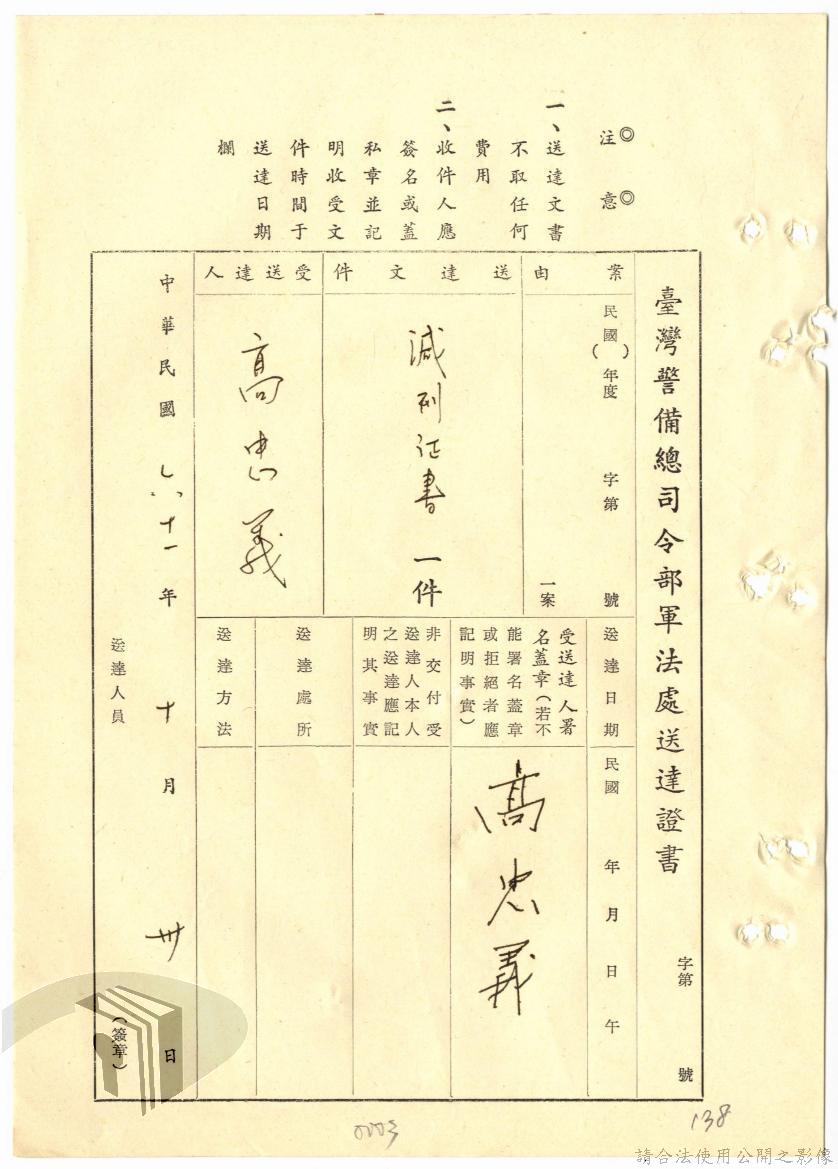 ◎注意◎
一、送達文書
不取任何
費用
二、收件人應
簽名或蓋
私章並記
明收受文
件時間于
送達日期
欄
臺灣警備總司令部軍法處送達證書
字第
號
案由
民國( )年度
字第
號
一案
送達文件
減刑证書一件
受送達人
高忠義
送達日期
民國
年月日午
受送達人署
名蓋章(若不
能署名蓋章
或拒絕者應
記明事實)
高忠義
非交付受
送達人本人
之送達應記
明其事實
送達處所
送達方法
中華民國六十一年十月卅日
送達人員
(簽章)
0003
138
請合法使用公開之影像